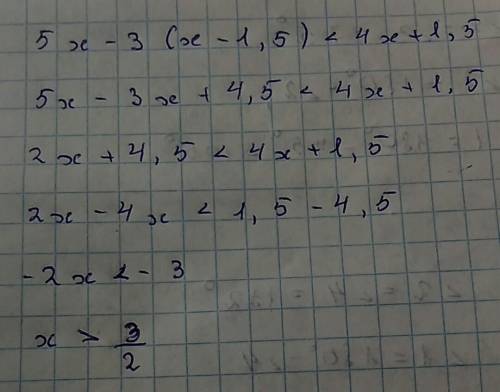 5x - 3 (x - 1,5) < 4x + 1,5
5x - 3x + 4,5 < 4x + 1,5
2x + 4,5 < 4x + 1,5
2x - 4x < 1,5 - 4,5
-2x < - 3
x > 3/2